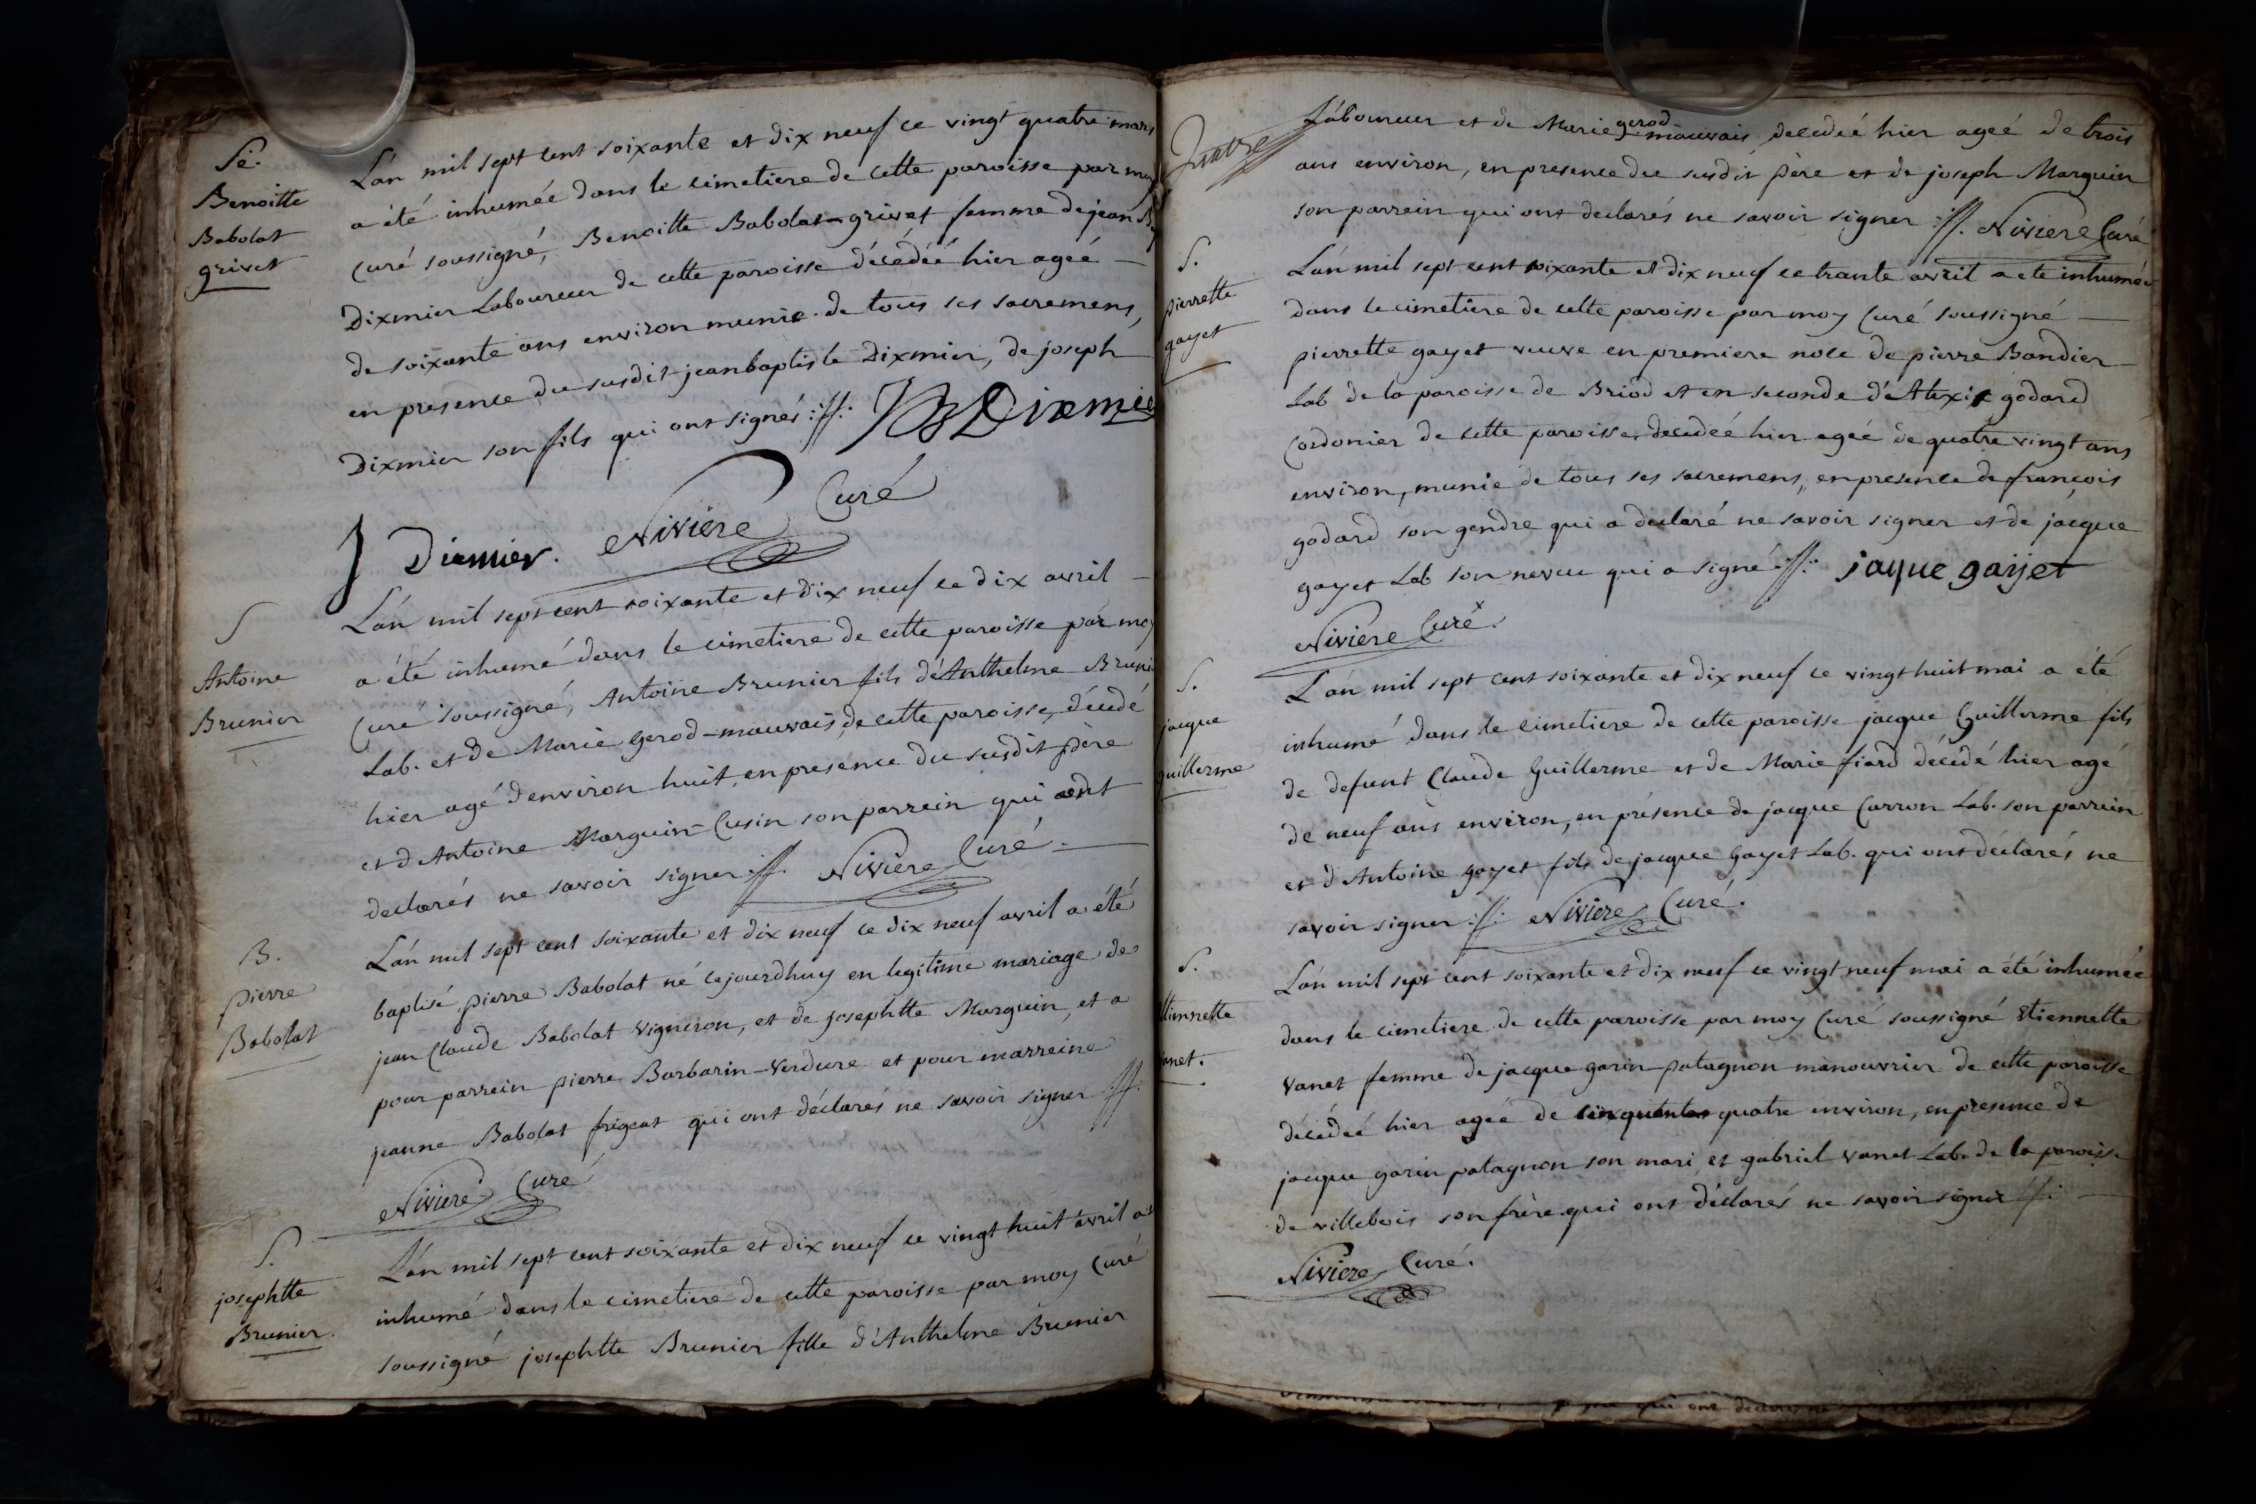 Sé.
Benoitte
Babolat
grivet
L'an mil sept cent soixante et dix neuf ce vingt quatre mars
a été inhumée dans le cimetiere de cette paroisse par moy
Curé soussigné, Benoitte Babolat-grivet femme de jean B
Dixmier Laboureur de cette paroisse décédéé hier ageé —
de soixante ans environ munie de tous ses sacremens,
en presence du susdit jean baptiste Dixmier, de joseph
Dixmier son fils qui ont signés JB Dixmie
J Dixmier. Niviere Curé
S
Antoine
Brunier
L'an mil sept cent soixante et dix neuf ce dix avril —
a été inhumé dans le cimetiere de cette paroisse par moy
Curé soussigné, Antoine Brunier fils d'Anthelme Bruni
Lab. et de Marie Gerod-mauvais de cette paroisse, décédé
hier agé d'environ huit, en presence du susdit père
et d'Antoine Marguin-Cusin son parrein qui ont
declarés ne savoir signer Niviere Curé. —
B.
pierre
Babolat
L'an mil sept cent soixante et dix neuf ce dix neuf avril a été
baptisé pierre Babolat né cejourdhuy en legitime mariage de
jean Claude Babolat vigneron, et de josephtte Marguin, et a
pour parrein pierre Barbarin-Verdure et pour marreine
jeanne Babolat frigeat qui ont déclarés ne savoir signer
Niviere Curé
S.
josephtte
Brunier.
L'an mil sept cent soixante et dix neuf ce vingt huit avril a
inhumé dans le cimetiere de cette paroisse par moy Curé
soussigné josephtte Brunier fille d'Anthelme Brunier
Quatre
Laboureur et de Marie gerod mauvais, decedeé hier ageé de trois
ans environ, en presence du susdit père et de joseph Marguin
son parrein qui ont declarés ne savoir signer Niviere Curé
S.
pierrette
gayet
L'an mil sept cent soixante et dix neuf ce trante avril a été inhumée
dans le cimetiere de cette paroisse par moy Curé soussigné —
pierrette gayet veuve en premiere noce de pierre Bandier
Lab de la paroisse de Briod et en seconde d'Alexis godard
Cordonier de cette paroisse, decedeé hier ageé de quatre vingt ans
environ, munie de tous ses sacremens, en presence de françois
godard son gendre qui a declaré ne savoir signer et de jacque
gayet Lab son neveu qui a signé jaque gayet
Niviere Curé.
S.
jacque
guillerme
L'an mil sept cent soixante et dix neuf ce vingt huit mai a été
inhumé dans le cimetiere de cette paroisse jacque Guillerme fils
de defunt Claude Guillerme et de Marie fiard décédé hier agé
de neuf ans environ, en présence de jacque Carron Lab. son parrein
et d'Antoine gayet fils de jacque Gayet Lab. qui ont déclarés ne
savoir signer Niviere Curé.
S.
tiennette
anet.
L'an mil sept cent soixante et dix neuf ce vingt neuf mai a été inhumée
dans le cimetiere de cette paroisse par moy Curé soussigné Etiennette
vanet femme de jacque garin-patagnon manouvrier de cette paroisse
décédeé hier ageé de cinquante quatre environ, en presence de
jacque garin patagnon son mari, et gabriel vanet Lab. de la paroisse
de villebois son frère qui ont déclarés ne savoir signer
Niviere Curé.